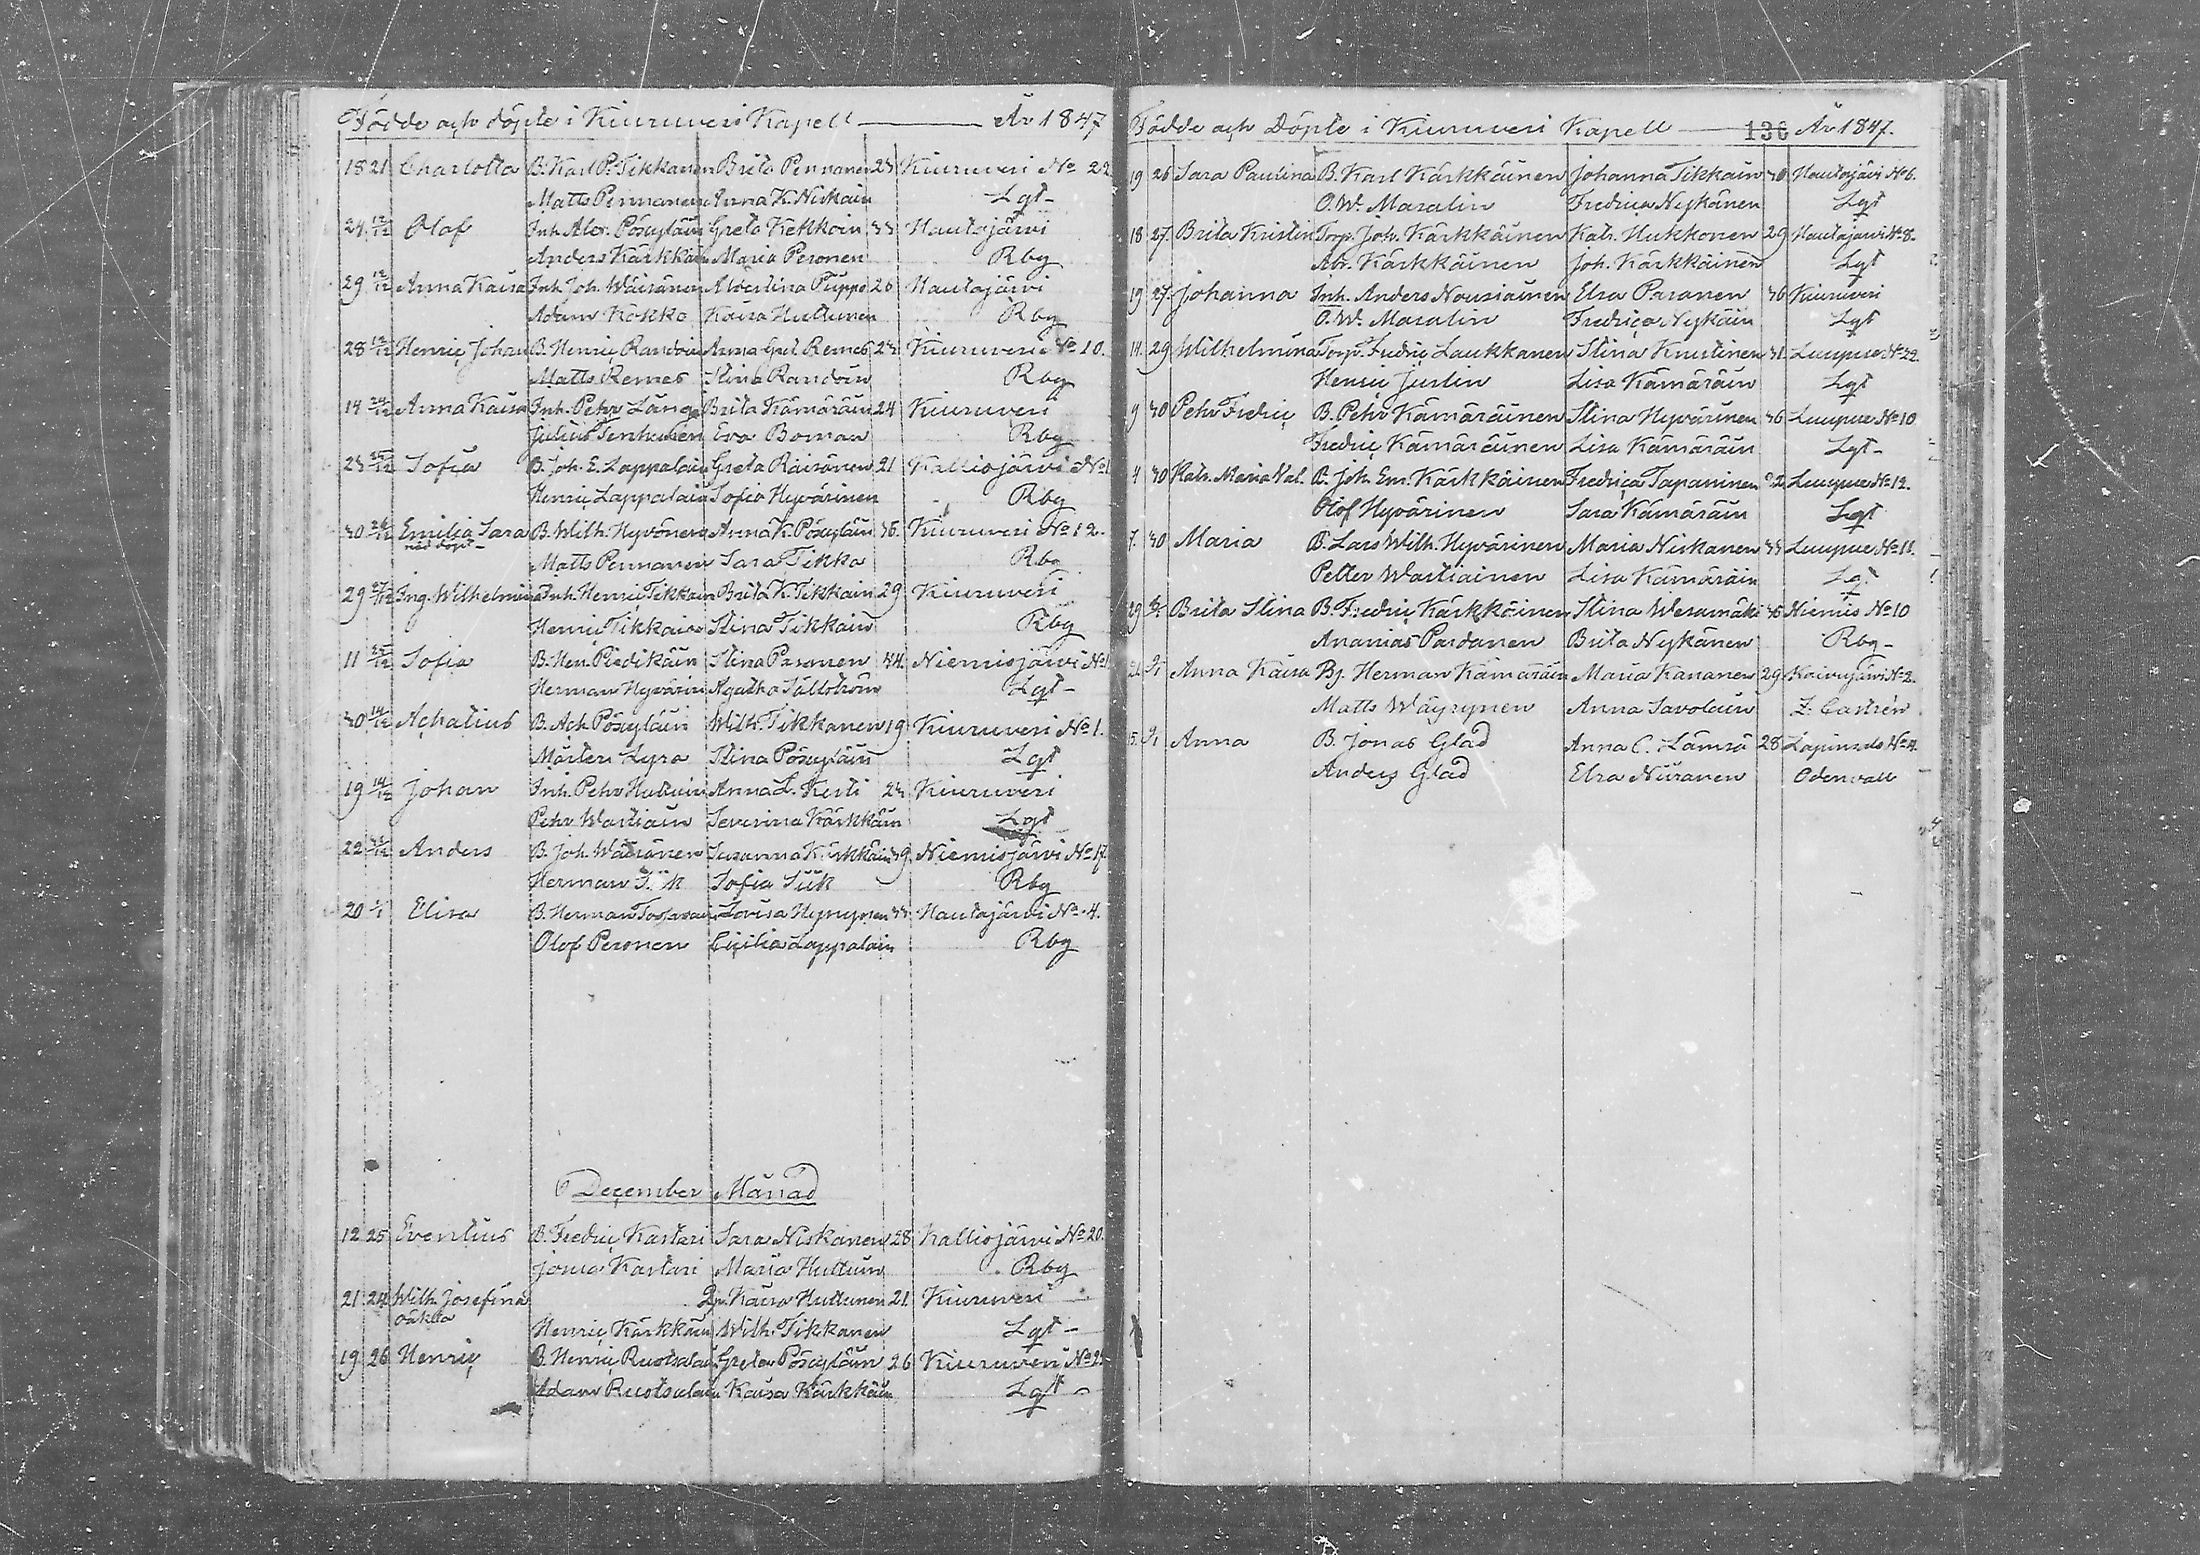 Födde och döpte i Kiuruvesi Kapell — År 1847
18 21 Charlotta B. Karl P. Tikkanen Brita Pennanen 23 Kiuruvesi No 22
Matts Pennanen Anna K. Niskain Lgt
24 12/12 Olof Inh. Alex. Pöxyläin Greta Kekkoin 33 Hautajärvi
Anders Kärkkäin Maria Peronen Rbg
29 12/12 Anna Kaisa Inh. Joh. Wäisänen Albertina Puppo 26 Hautajärvi
Adam Kokko Kaisa Huttunen Rbg
28 12/12 Henric Johan B. Henric Randoin Anna Gret. Remes 23 Kiuruvesi No 10.
Matts Remes Stina Randoin Rbg
14 Anna Kaisa Inh. Petr Långe Brita Kämäräin 24 Kiuruvesi
Julius Tenhunen Eva Boman Rbg
23 Sofia B. Joh. E. Lappalain Greta Räisänen 21 Kalliojärvi No 1
Henric Lappalain Sofia Hyvärinen Rbg
30 Emilia Sara B. Wilh. Hyvönen Anna K. Pöxyläin 36. Kiuruvesi No 12.
nöd döpt
Matts Pennanen Sara Tikka Rbg
29 Ing. Wilhelmina Inh. Henric Tikkain Brita K. Tikkain 29 Kiuruvesi
Henric Tikkain Stina Tikkain Rbg
11 Sofia B. Hen. Piedikäin Stina Pasonen 44. Niemisjärvi No 1
Herman Hyvärin Agatha Sällström Lgt
30 14/12 Achatius B. Ach. Pöxyläin Wilh. Tikkanen 19 Kiuruvesi No 1.
Mårten Lyra Stina Pöxyläin Lgt
19 14/12 Johan Inh. Petr Huttuin Anna L. Kesti 23 Kiuruvesi
Petr Wartiain Severina Kärkkäin Lgt
22 Anders B. Joh. Wäisänen Susanna Kärkkäin 39. Niemisjärvi No 17
Herman Siik Sofia Siik Rbg
20 Elisa B. Herman Lovisa Hynynen 33 Hautajärvi No 4.
Olof Peronen Cicilia Lappalain Rbg
December Månad
12 25 Eventius B. Fredric Kastari Sara Niskanen 28 Kalliojärvi No 20.
Jonas Kastari Maria Huttuin Rbg
21 24 Wilh. Josefina Kaisa Huttunen 21. Kiuruvesi
oäkta
Henric Kärkkäin Wilh. Tikkanen Lgt
19 26 Henric B. Henric Ruotsalai Greta Pöxyläin 26 Kiuruvesi No 2
Adam Ruotsalain Kaisa Kärkkäin Lgt
Födde och Döpte i Kiuruvesi Kapell — 136 År 1847.
19 26 Sara Paulina B. Karl Kärkkäinen Johanna Tikkain 30 Hautajärvi No 6.
O. W. Masalin Fredrica Nykänen Lgt
18 27. Brita Kristin Torp. Joh. Kärkkäinen Katr. Hukkonen 29 Hautajärvi No 8.
Abr. Kärkkäinen Joh. Kärkkäinen Lgt
19 27. Johanna Inh. Anders Nousiainen Elsa Pasanen 36 Kiuruvesi
O. W. Masalin Fredrica Nykäin Lgt
14. 29 Wilhelmina Torp. Fredric Laukkanen Stina Knutinen 31. Luupue No 22.
Henric Juslin Lisa Kämäräin Lgt
9 30 Petr Fredric B. Petr Kämäräinen Stina Hyvärinen 36 Luupue No 10
Fredric Kämäräinen Lisa Kämäräin Lgt
4 30 Katr. Maria Val. B. Joh. Em. Kärkkäinen Fredrica Tapaninen 22 Luupue No 12.
Olof Hyvärinen Sara Kämäräin Lgt
7. 30 Maria B. Lars Wilh. Hyvärinen Maria Niskanen 33 Luupue No 11.
Petter Wartiainen Lisa Kämäräin Lgt
29 Brita Stina B. Fredric Kärkkäinen Stina Wesamäki 36 Niemis No 10
Ananias Pardanen Brita Nykänen Rbg
Anna Kaisa Bj. Herman Kämäräin Maria Kananen 29. Koivujärvi No 2.
Matts Wäyrynen Anna Savolain Z. Castrén
15. Anna B. Jonas Glad Anna C. Lämsä 28 Lapinsalo No 4.
Anders Glad Elsa Niiranen Odenvall